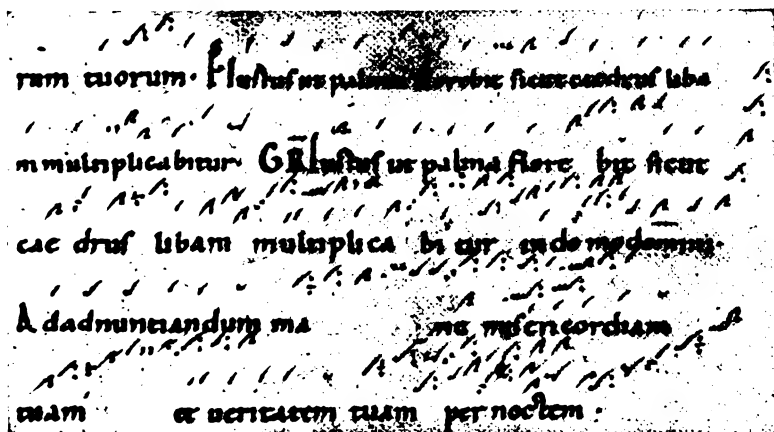 rum tuorum. Ps Iustus ut palma florebit sicut caedrus liba
m multiplicabitur GR Iustus ut palma flore bit sicut
cae drus libam multiplica bi tur in domo domini.
Ad adnuntiandum ma ne misericordiam
tuam et veritatem tuam per noctem.